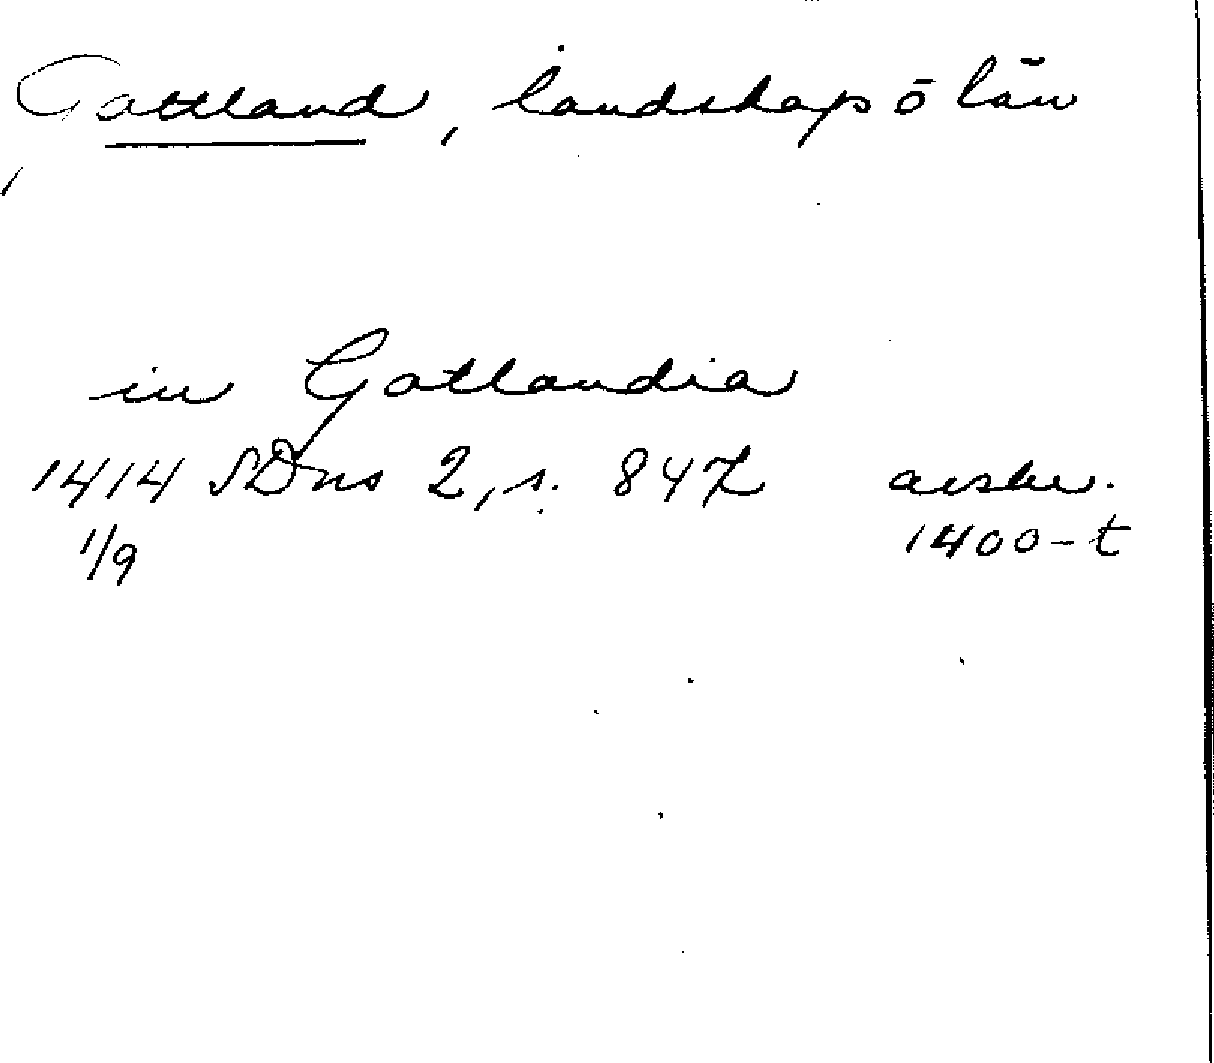 Gottland, landskap ō län
in Gotlandia
1414 SDns 2, s. 847 avskr.
1/9 1400-t